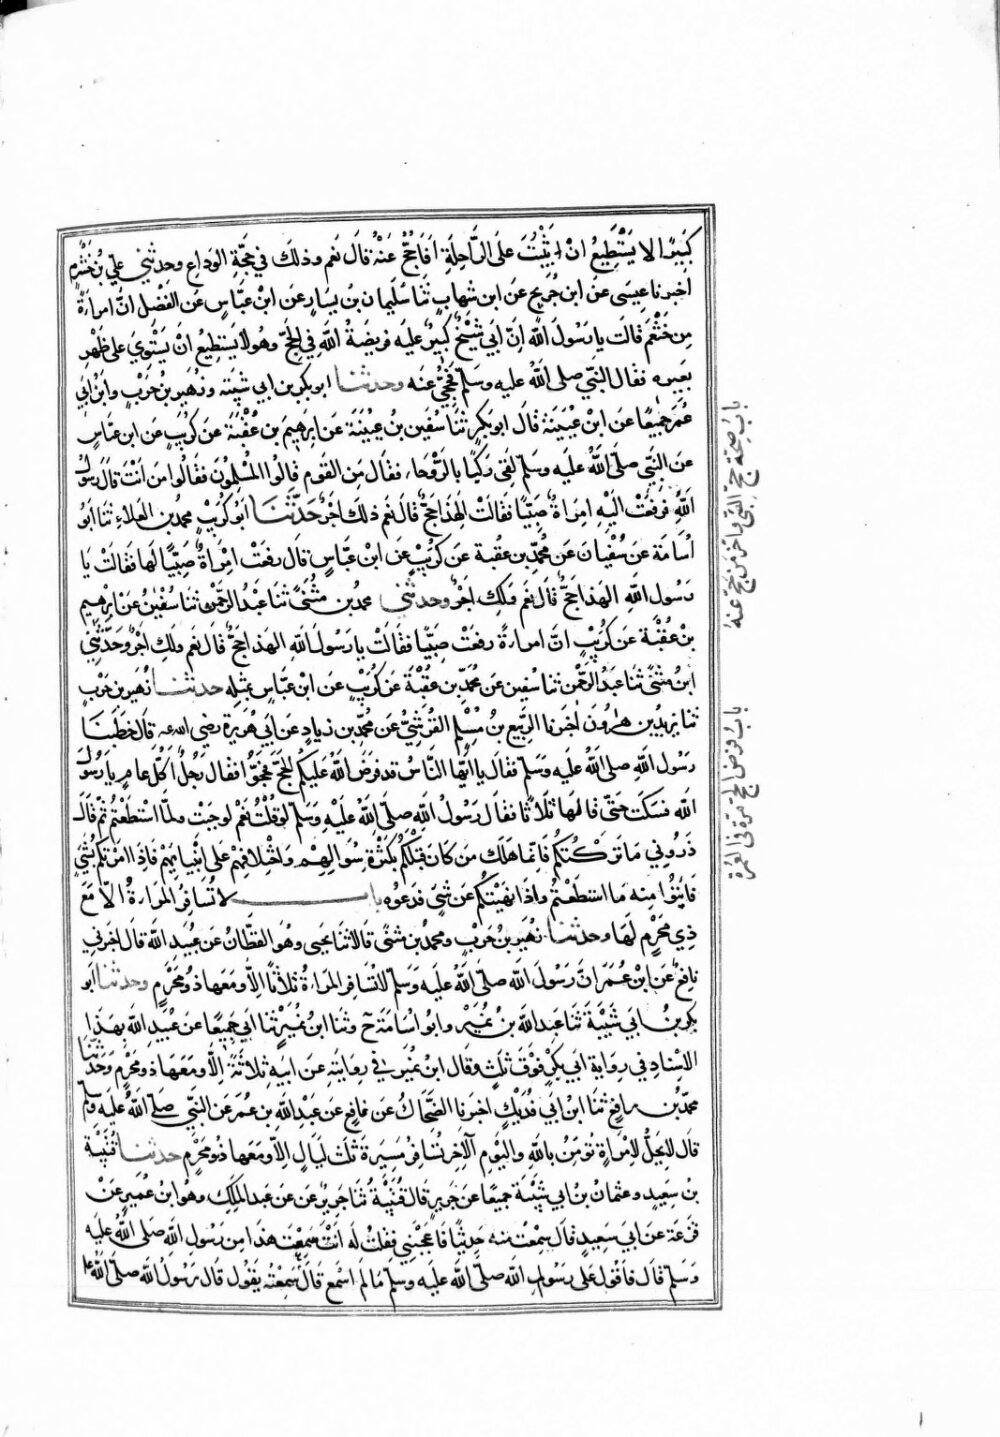 كَبِيرًا لا يَسْتَطِيعُ انْ يَثْبُتَ عَلَى الرَّاحِلَةِ اَفَاحُجُّ عَنْهُ قَالَ نَعَم وذلك في حَجَّةِ الوَدَاعِ وحدثني عَلِيّ بنُ خَشْرَمٍ
اخبرنا عِيسَى عَن ابن جُرَيجٍ عَن ابن شِهابٍ ثَنَا سُلَيمان بن يَسَارٍ عَن ابْن عَبَّاسٍ عَن الفَضْلِ انَّ امراءةً
مِن خَثْعَمَ قالَت يا رَسُولَ اللَّه اِنَّ اَبي شَيْخٌ كَبِيرٌ عليَه فريضَةُ اللَّهِ فِي الحَجِّ وهُو لَا يَستَطِيعُ انْ يَسْتَوِيَ على ظَهْرِ
بعيره فقالَ النَّبي صلى اللَّهُ عليه وسلم فَحُجِّي عَنه وحدثنا ابو بكر بن ابي شيبَة وزهَير بن حَرْبٍ وابْنُ ابي
عُمَرَ جَمِيعًا عَن ابْن عُيَيَنَة قالَ ابو بَكرٍ ثَنَا سُفيَن بنُ عيينَةَ عَن اِبرَهِيمَ بن عُقْبَةَ عَن كُرَيبٍ عَن ابن عَبَّاسٍ
عَن النَّبي صَلَّى اللَّهُ عليه وسَلم لَقِىَ رَكْبًا بالرَّوْحَاءِ فقالَ مَن القَوم قالوا المُسْلِمُونَ فقالُوا مَن انْتَ قالَ رسُولُ
اللَّهِ فرفَعَتْ الَيْهِ امرَاةٌ صَبِيًّا فقالَتْ اَلِهَذا حَجٌّ قَالَ نَعَم ذلك اَجْرٌ حَدَّثَنَا اَبُو كُرَيْبٍ محمد بن العَلَاءِ ثَنَا ابُو
اُسَامَة عَن سُفْيانَ عَن مُحَمَّدِ بن عُقْبةَ عَن كرَيْبٍ عَن ابْن عَبَّاسٍ قالَ رفعَتْ امْرَاةٌ صَبِيًّا لَها فقالَتْ يا
رَسُولَ اللَّه اَلِهَذا حَجٌّ قالَ نَعَم وَلَكِ اَجْرٌ وحدثني محمدُ بن مُثَنَّى ثَنَا عَبْدُ الرَّحْمن ثنا سُفيٰنُ عَنْ اِبرَهِيم
بن عُقْبَةَ عَن كُرَيْبٍ انَّ امراءةً رفعَتْ صَبِيًّا فقالَتْ يا رَسُولَ اللَّهِ اَلِهذا حَجٌّ قالَ نَعَم ولَكِ اَجْرٌ وحَدَّثَنِي
ابْنُ مُثَنَّى ثَنا عَبْدُ الرَّحْمٰن ثنا سُفين عَن مُحَمَّدِ بن عُقْبَةَ عَن كُرَيْبٍ عَن ابْن عَبَّاسٍ بمِثلِه حدثنا زُهَير بن حَرْبٍ
ثنا يزيدُ بن هٰرُونَ اَخْبَرنا الرَّبِيع بن مُسْلِم القُرَشِيُّ عَن مُحَمَّدِ بن زيادٍ عَن اَبي هُرَيرَة رضى الله عنه قالَ خَطَبَنَا
رَسُولُ اللَّهِ صلى اللَّهُ عليَه وسَلم فقالَ يا اَيُّها النَّاسُ قد فَرَضَ اللَّهُ عَلَيكُم الحَجَّ فحُجُّوا فقال رَجُلٌ اَكُلَّ عامٍ يا رَسُولَ
اللَّه فسَكَتَ حَتَّى قالَها ثَلَاثًا فقالَ رَسُولُ اللَّهِ صلى اللَّهُ عَلَيْهِ وسَلم لَوْ قُلْتُ نَعَمْ لَوجَبَتْ ولمَا اسْتَطَعْتُم ثُمَّ قَالَ
ذَرُونِي مَا تَرَكْتُكُم فَانَّما هَلَكَ مَن كانَ قَبْلَكُم بكَثْرَةِ سؤالِهِمْ وَاخْتِلافِهِمْ على انبيَايِهِمْ فاِذَا امَرْتكُم بشَيْءٍ
فَأْتُوا مِنهُ مَا استطَعْتُم واذا نهَيْتكُم عَن شَيْءٍ فدَعُوه باب لا تُسَافِرُ المراءةُ اِلَّا مَعَ
ذِي مَحْرَمٍ لَها وحدثنا زهَيرُ بنُ حَربٍ ومحمد بن مثنّى قالا ثنا يحيى وهُو القَطَّانُ عَن عُبَيدِ اللَّه قالَ اخبَرني
نافِعٌ عَن ابْن عُمَرَ انَّ رَسُولَ اللَّه صلّى اللَّهُ عليه وَسَلم قالَ لا تُسَافِر المَرَاءةُ ثلَاثًا اِلَّا ومَعَها ذُو مَحْرَمٍ وحدثنا ابو
بكرِ بنُ ابي شَيْبَةَ ثَنَا عَبدُ اللَّه بنُ نُمَيْرٍ وابو اسامَة ح وثنا ابنُ نُميرٍ ثَنَا اَبي جَمِيعًا عَن عُبَيدِ اللَّه بِهَذَا
الاسْنادِ في رِوَاية ابي بكرٍ فَوْقَ ثَلَاثٍ وقالَ ابنُ نُمَيرٍ في رِوايَتِهِ عَن ابيه ثَلاثَةً اِلَّا ومَعَها ذو مَحْرَمٍ وحَدَّثَنَا
محمّدُ بن رافِعٍ ثَنَا ابْن ابي فُدَيكٍ اخبَرنا الضَّحَّاكُ عَن نافِعٍ عَن عَبْدِ اللَّهِ بن عُمَر عَن النَّبِي صلى اللَّهُ عليه وسلم
قالَ لا يَحِلُّ لِامْرَاةٍ تؤمِنُ باللَّهِ واليَوْمِ الْآخِرِ تُسَافِرُ مَسِيَرة ثَلَاثِ لَيَالٍ اِلَّا ومَعَها ذُو مَحْرَمٍ حدثنا قُتَيْبَةُ
بن سَعِيدٍ وعثمانُ بن ابي شَيْبَةَ جميعًا عَن جَرِيرٍ قالَ قُتَيْبَةُ ثنا جَرِيرٌ عَن عَبد المَلِكِ وهُو ابْن عُمَيرٍ عَنْ
قَزَعَة عَن اَبي سَعِيدٍ قالَ سمِعْتُ مِنه حَدِيثًا فَاَعجَبَنِي فقلتُ له انْتَ سَمِعْتَ هَذا مِن رَسُولِ اللَّهِ صَلى اللَّهُ عليَه
وسَلم قالَ فَاَقولُ على رسُولِ اللَّه صلّى اللَّه عليه وسلم ما لَم اسْمَع قالَ سَمِعْتُه يقُول قال رسُولُ اللَّه صلّى اللَّه عل
باب صحة حج الصبي واجر من حج عنه
باب فرض الحج مرة في العمر